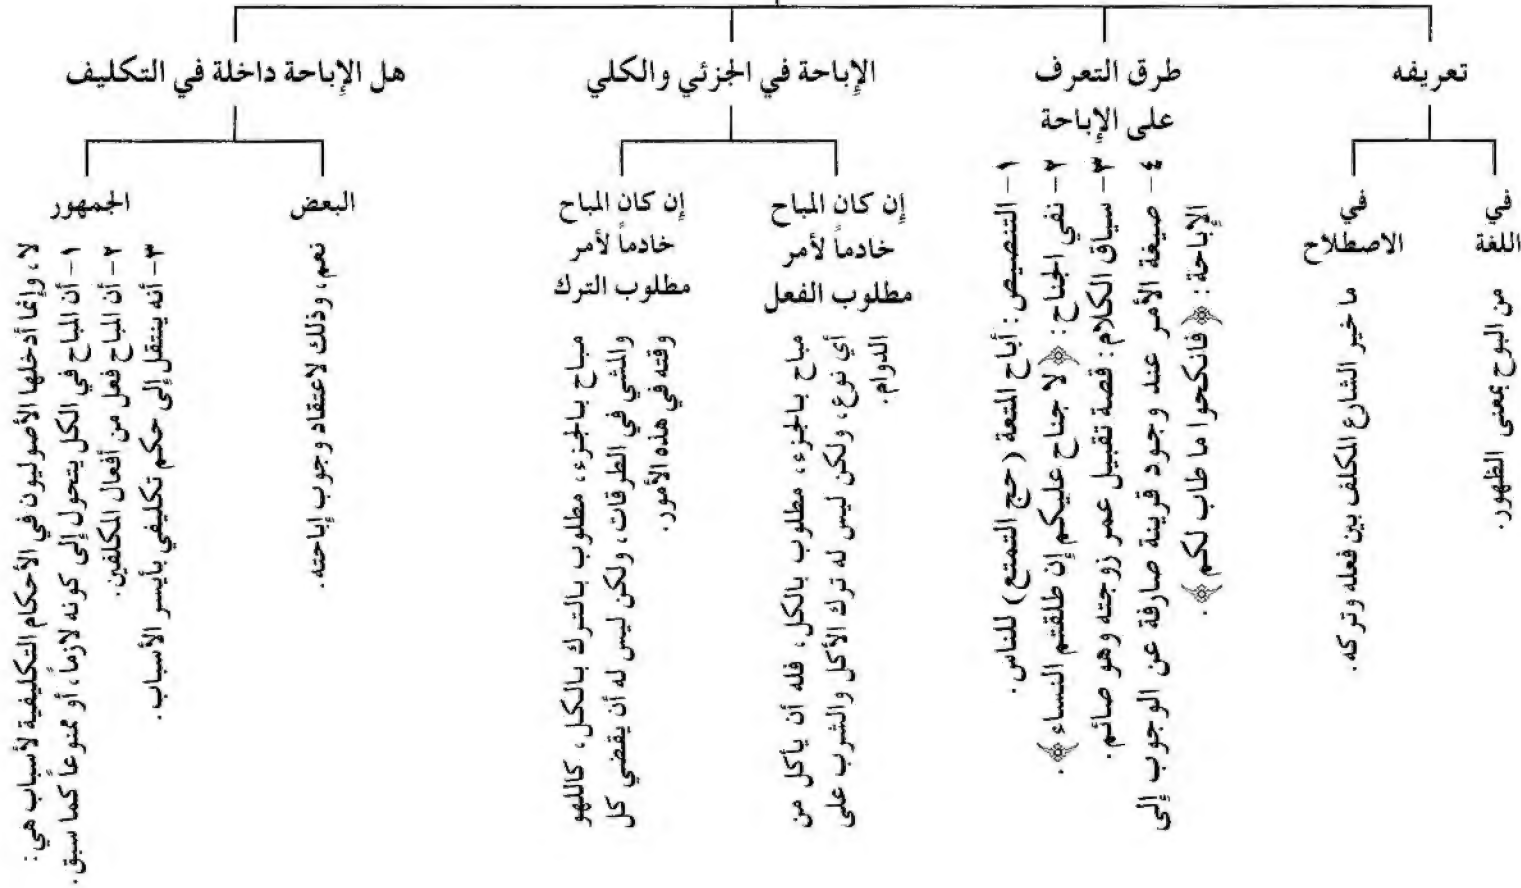 تعريفه
في
اللغة
من البوح بمعنى الظهور.
في
الاصطلاح
ما خير الشارع المكلف بين فعله وتركه.
طرق التعرف
على الإباحة
١ - التنصيص: أباح المتعة (حج التمتع) للناس.
٢ - نفي الجناح: ﴿لا جناح عليكم إن طلقتم النساء﴾.
٣ - سياق الكلام: قصة تقبيل عمر زوجته وهو صائم.
٤ - صيغة الأمر عند وجود قرينة صارفة عن الوجوب إلى
الإباحة: ﴿فانكحوا ما طاب لكم﴾.
الإباحة في الجزئي والكلي
إن كان المباح
خادماً لأمر
مطلوب الفعل
مباح بالجزء، مطلوب بالكل، فله أن يأكل من
أي نوع، ولكن ليس له ترك الأكل والشرب على
الدوام.
إن كان المباح
خادماً لأمر
مطلوب الترك
مباح بالجزء، مطلوب بالترك بالكل، كاللهو
والمشي في الطرقات، ولكن ليس له أن يقضي كل
وقته في هذه الأمور.
هل الإباحة داخلة في التكليف
البعض
نعم، وذلك لاعتقاد وجوب إباحته.
الجمهور
لا، وإنما أدخلها الأصوليون في الأحكام التكليفية لأسباب هي:
١ - أن المباح في الكل يتحول إلى كونه لازماً، أو ممنوعاً كما سبق.
٢ - أن المباح فعل من أفعال المكلفين.
٣ - أنه ينتقل إلى حكم تكليفي بأيسر الأسباب.